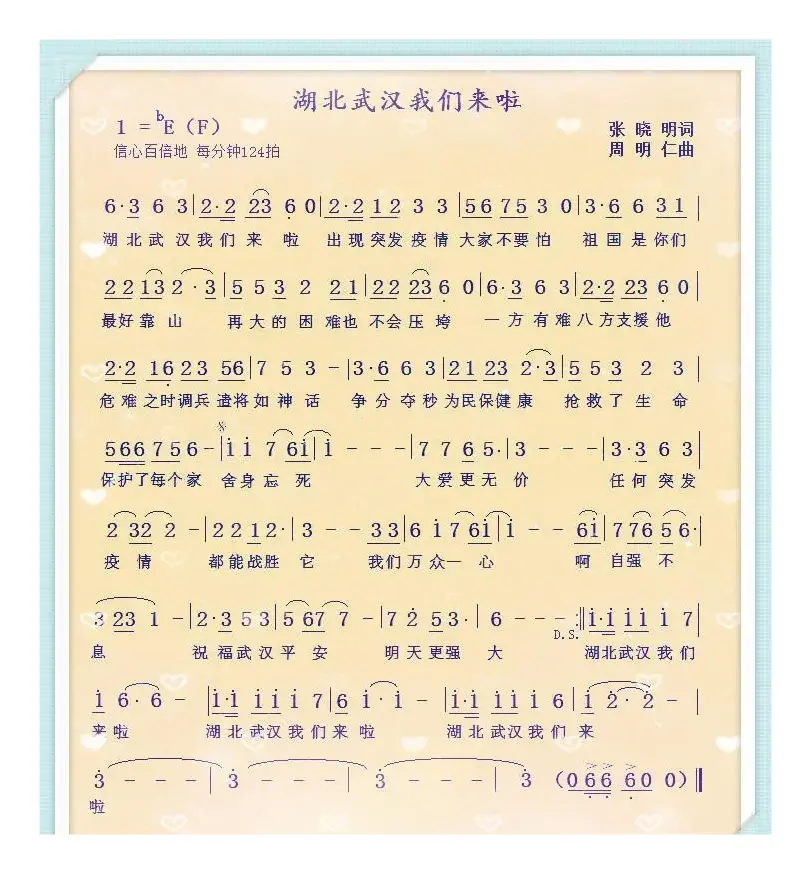 湖北武汉我们来啦
1 = ᵇE（F）
张 晓 明词
信心百倍地 每分钟124拍
周 明 仁曲
6·3 6 3|2·2 23 6 0|2·2 1 2 3 3|56 75 3 0|3·6 6 31|
湖北武汉我们来 啦 出现突发疫情 大家不要怕 祖国是你们
22 13 2·3|5 5 3 2 21|22 23 6 0|6·3 6 3|2·2 23 6 0|
最好靠山 再大的困难也 不会压垮 一方有难八方支援他
2·2 16 23 56|7 5 3 -|3·6 6 3|21 23 2·3|5 5 3 2 3|
危难之时调兵遣将如神话 争分夺秒为民保健康 抢救了生命
566 75 6-|i i 7 6i|i - - -|7 7 6 5·|3 - - -|3·3 6 3|
保护了每个家 舍身忘死 大爱更无价 任何突发
2 32 2 -|2 2 1 2·|3 - - 33|6 i7 6i|i - - 6i|776 56·|
疫情 都能战胜它 我们万众一心 啊 自强不
3 23 1 -|2·3 5 3|5 67 7 -|7 2 5 3·|6 - - -:||i·i ii i 7|
D.S.
息 祝福武汉平安 明天更强大 湖北武汉我们
i 6·6 -|i·i ii i 7|6 i·i -|i·i ii i 6|i 2·2 -|
来啦 湖北武汉我们来啦 湖北武汉我们来
3 - - -|3 - - -|3 - - -|3 （0 66 60 0）||
啦